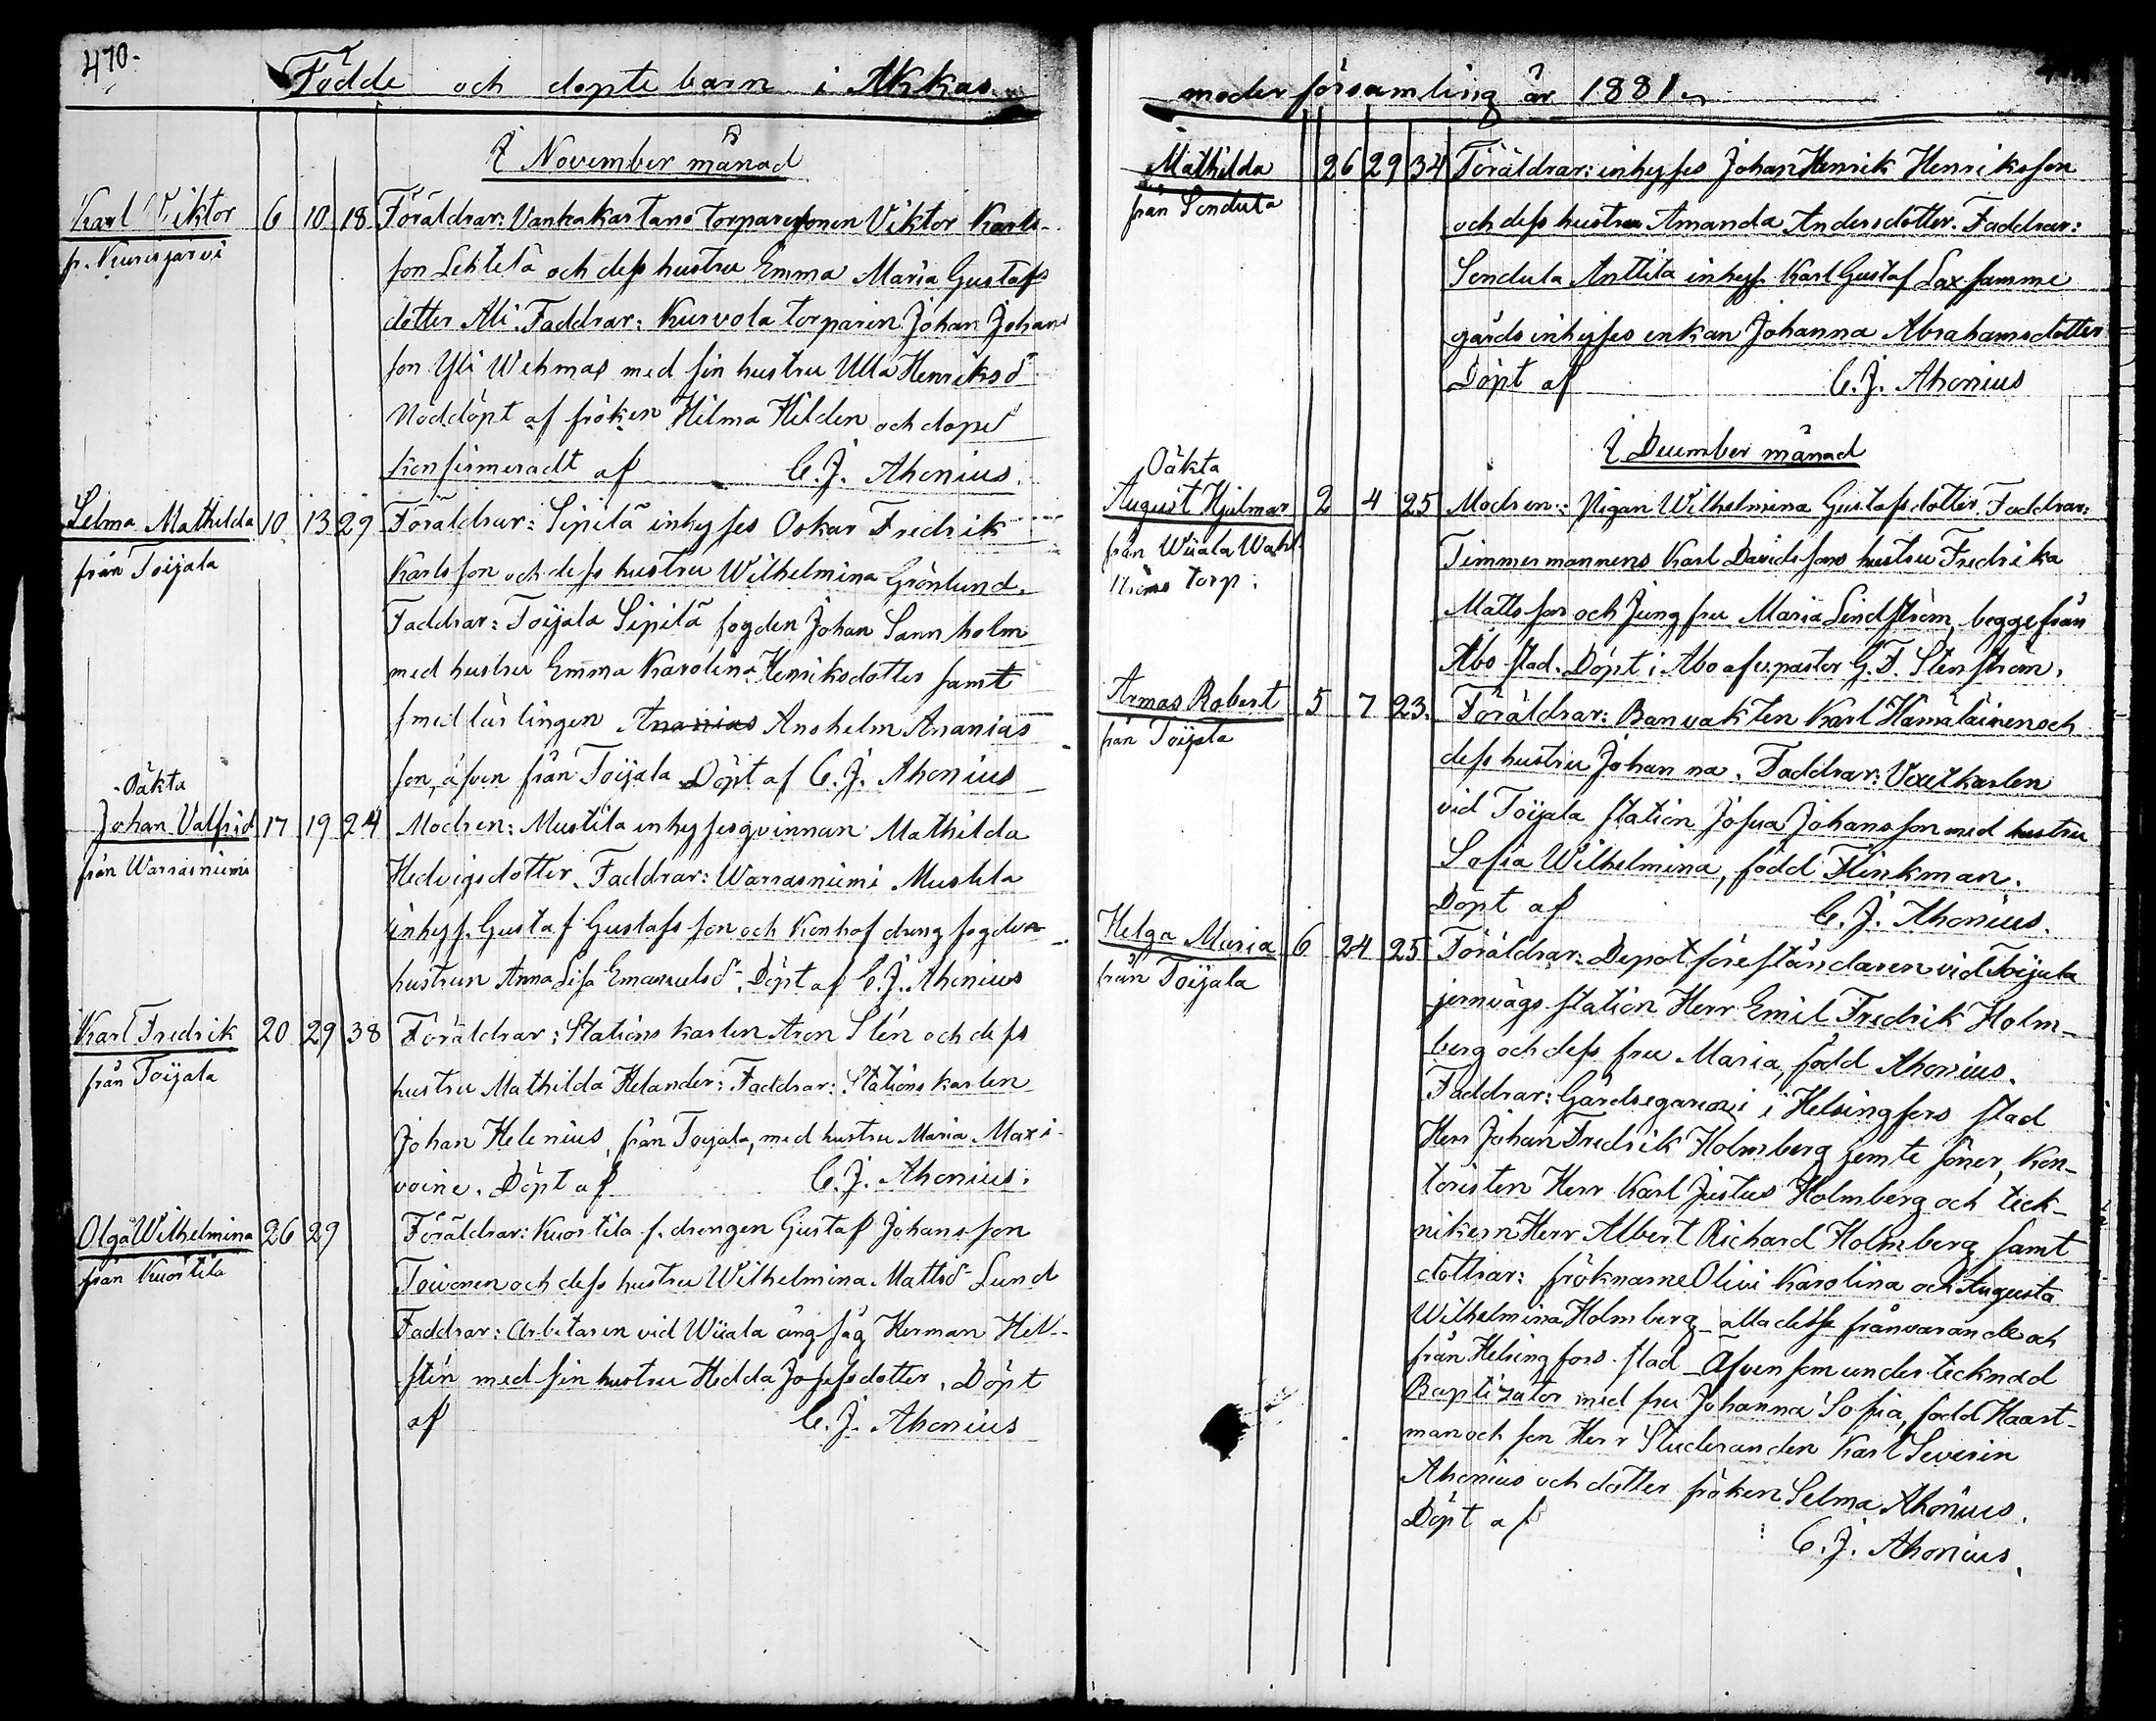 470.
Födde och döpte barn i Akkas
I November månad
Karl Viktor 6 10 18 Föräldrar: Vanhakartano torparesonen Viktor Karls-
fr. Kurisjärvi
son Lehtelä och dess hustru Emma Maria Gustafs
dotter Ali. Faddrar: Kurvola torparen Johan Johans
son Yli Wehmas med sin hustru Ulla Henriksd.
Nöddöpt af fröken Hilma Hilden och dopet
konfirmeradt af C. J. Ahonius.
Selma Mathilda 10 13 29 Föräldrar: Sipilä inhyses Oskar Fredrik
från Toijala
Karlsson och dess hustru Wilhelmina Grönlund.
Faddrar: Toijala Sipilä fogden Johan Sannholm
med hustru Emma Karolina Henriksdotter samt
smedlärlingen Ananias Anshelm Ananias
son, äfven från Toijala Döpt af C. J. Ahonius
Oäkta
Johan Valfrid 17 19 24 Modren: Mustila inhysesqvinnan Mathilda
från Warrasniemi
Hedvigsdotter. Faddrar: Warrasniemi Mustila
inhys. Gustaf Gustafsson och Konho drengfogden
hustrun Anna Lisa Emanuelsd. Döpt af C. J. Ahonius
Karl Fredrik 20 29 38 Föräldrar: Stations karlen Aron Stén och dess
från Toijala
hustru Mathilda Helander: Faddrar: Stations karlen
Johan Helenius, från Toijala, med hustru Maria Maxi-
voine. Döpt af C. J. Ahonius.
Olga Wilhelmina 26 29 Föräldrar: Kuortila f. drengen Gustaf Johansson
från Kuortila
Toivonen och dess hustru Wilhelmina Mattsd. Lund
Faddrar: Arbetaren vid Wiiala ångsåg Herman Hell-
stén med sin hustru Hedda Josefsdotter. Döpt
af C. J. Ahonius
moderförsamling år 1881.
Mathilda 26 29 34 Föräldrar: inhyses Johan Henrik Henriksson
från Sendula
och dess hustru Amanda Andersdotter. Faddrar:
Sendula Anttila inhys. Karl Gustaf Lax samme
gårds inhyses enkan Johanna Abrahamsdotter
Döpt af C. J. Ahonius
I December månad
Oäkta
August Hjalmar 2 4 25 Modren: Pigan Wilhelmina Gustafsdotter. Faddrar:
från Wiiala
torp.
Timmermannens Karl Davidssons hustru Fredrika
Mattsson och Jungfru Maria Lindström, begge från
Åbo stad. Döpt i Åbo af v. pastor G. F. Stenström.
Armas Robert 5 7 23. Föräldrar: Banvakten Karl Hämäläinen och
från Toijala
dess hustru Johanna. Faddrar: Vexelkarlen
vid Toijala station Josua Johansson med hustru
Sofia Wilhelmina, född Flinkman.
Döpt af C. J. Ahonius.
Helga Maria 6 24 25 Föräldrar: Depot föreståndaren vid Toijala
från Toijala
jernvägs station Herr Emil Fredrik Holm-
berg och dess fru Maria, född Ahonius.
Faddrar: Gårdsegaren i Helsingfors stad
Herr Johan Fredrik Holmberg jemte söner, kon-
toristen Herr Karl Justus Holmberg och teck-
nikern Herr Albert Richard Holmberg samt
döttrar: fröknarne Olivi Karolina och Augusta
Wilhelmina Holmberg – alla desse frånvarande och
från Helsingfors stad – Äfvensom undertecknad
Baptizator med fru Johanna Sofia, född Haart-
man och son Herr Studeranden Karl Severin
Ahonius och dotter fröken Selma Ahonius.
Döpt af C. J. Ahonius.